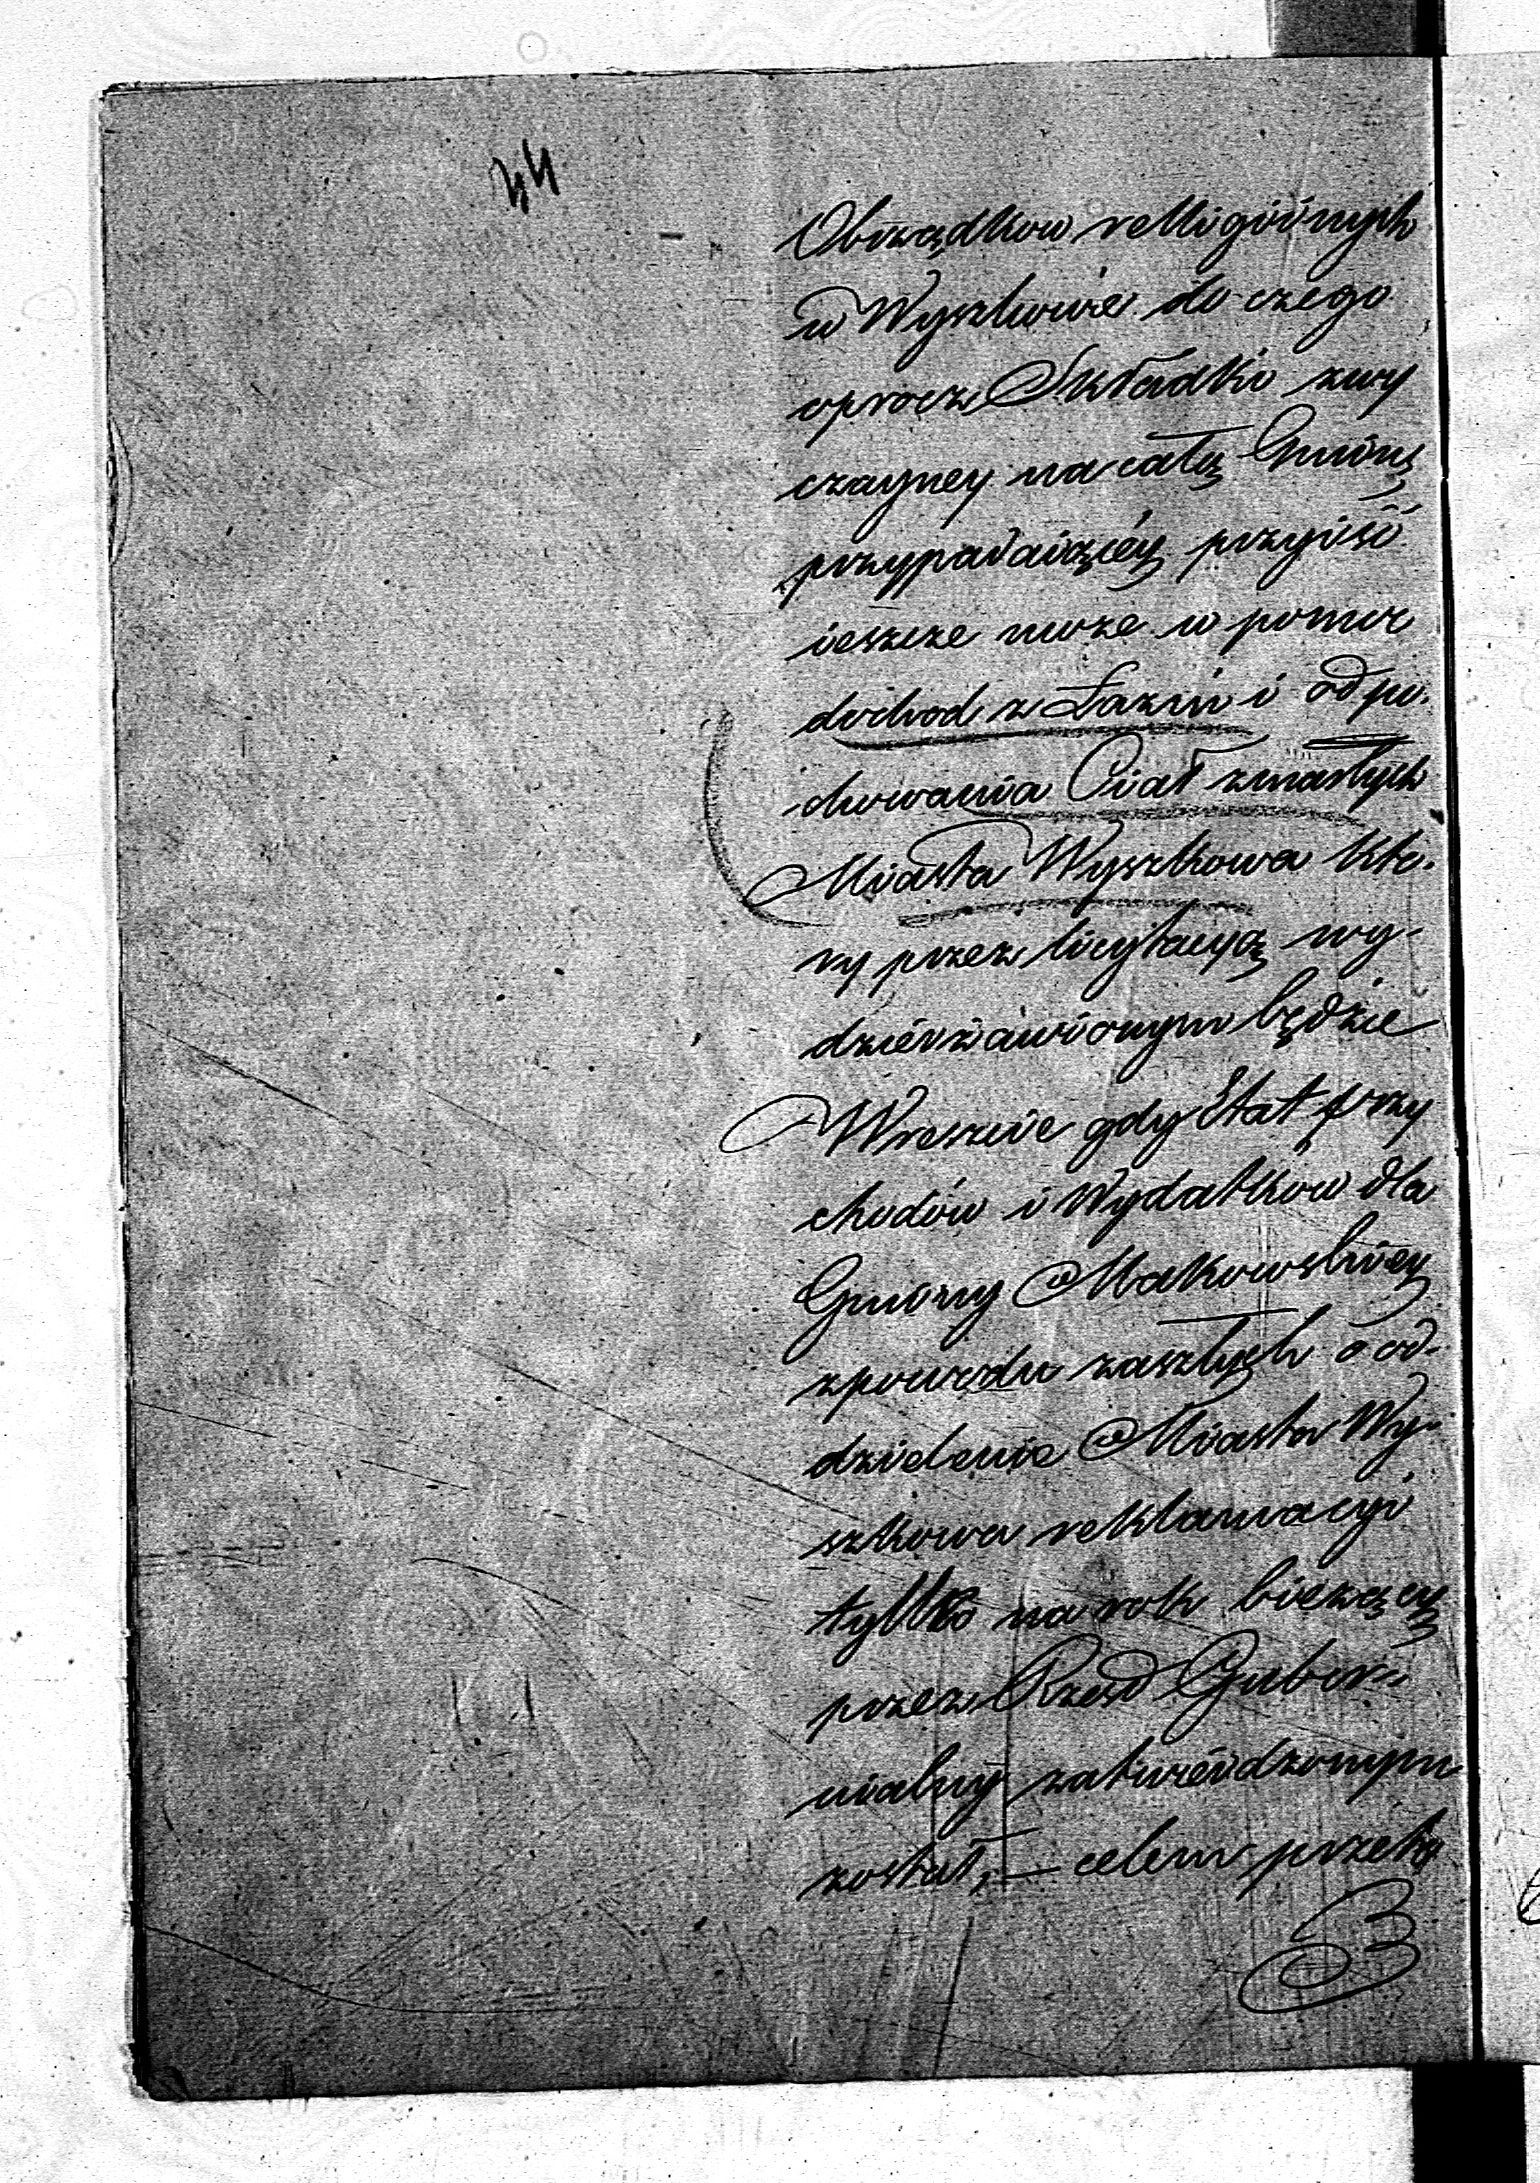 44
Obrządkow relligiinych
w Wyszkowie do czego
oprocz Składki zwy
czayney na całą Gminę
przypadaiącéy przyiść
ieszcze może w pomoc
dochod z Łazni i od po-
chowania Ciał zmarłych
Miasta Wyszkowa któ-
ry przez licytacyą wy-
dzierżawionym będzie
Wreszcie gdy Etat przy
chodów i Wydatków dla
Gminy Makowskiey
z powodu zaszłych o od-
dzielenie Miasta Wy-
szkowa reklamacyi
tylko na rok bieżący
przez Rząd Guber-
nialny zatwierdzonym
został, — celem przeto